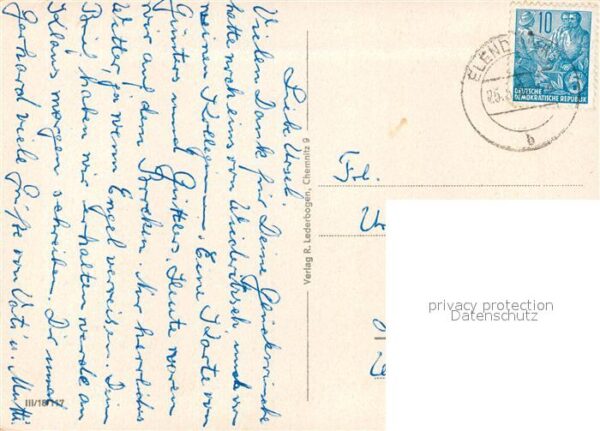 Liebe Ursel!
Vielen Dank für Deine Glückwünsche
hatte noch eins von Weideritzsch, und von
meinen Kolleginnen. Eine Karte von
Günters und Güttlers. Heute waren
wir auf dem Brocken. Nur herrliches
Wetter, ja wenn Engel verreisen. Dein
Brief haben wir erhalten werde an
Klaus morgen schreiben. Dir und
Gerhard viele Grüße von Vati u. Mutti.
III/18/117
Verlag R. Lederbogen, Chemnitz 9
10
DEUTSCHE
DEMOKRATISCHE REPUBLIK
ELEND
25.
b
Frl.
privacy protection
Datenschutz